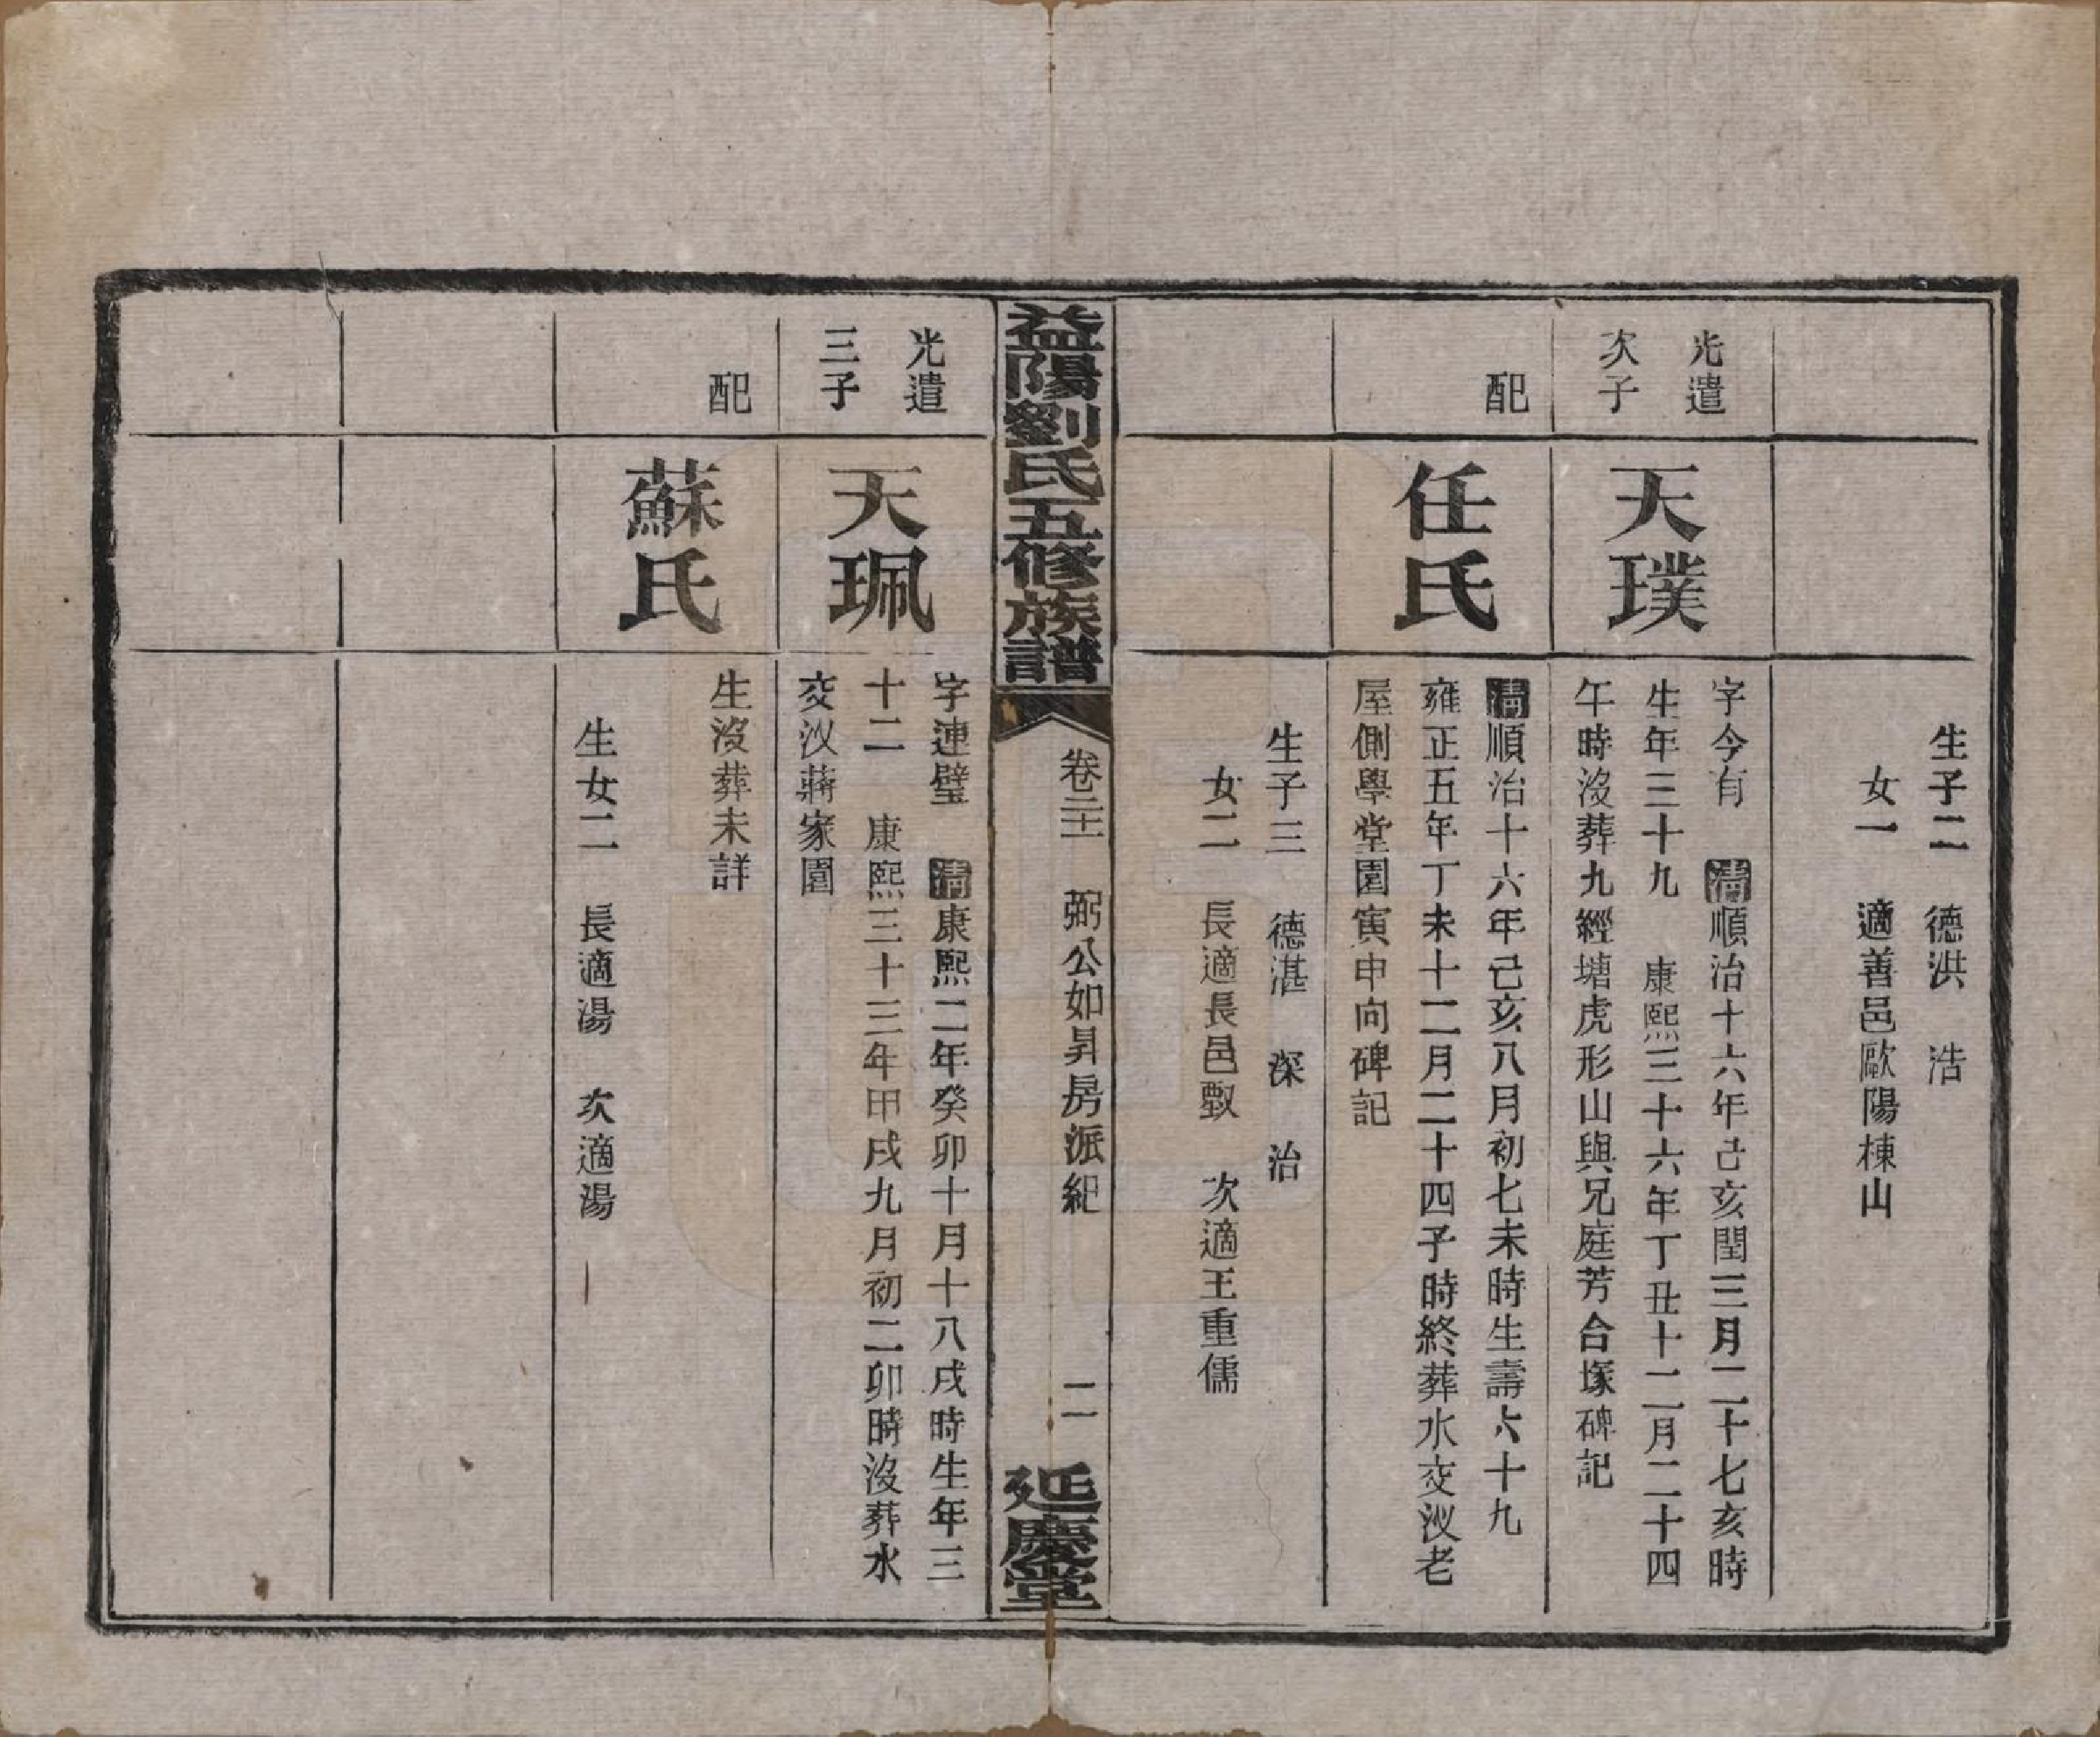 生子二　德洪　浩
女一　適善邑歐陽棟山
光遣
次子
天璞
字今有　清順治十六年己亥閏三月二十七亥時
生年三十九　康熙三十六年丁丑十二月二十四
午時沒葬九經塘虎形山與兄庭芳合塚碑記
配
任氏
清順治十六年己亥八月初七未時生壽六十九
雍正五年丁未十二月二十四子時終葬水交㳂老
屋側學堂園寅申向碑記
生子三　德湛　深　治
女二　長適長邑　次適王重儒
益陽劉氏五修族譜
卷二十一　弼公如昇房派紀　二
延慶堂
光遣
三子
天珮
字連璧　清康熙二年癸卯十月十八戌時生年三
十二　康熙三十三年甲戌九月初二卯時沒葬水
交㳂蔣家園
配
蘇氏
生沒葬未詳
生女二　長適湯　次適湯